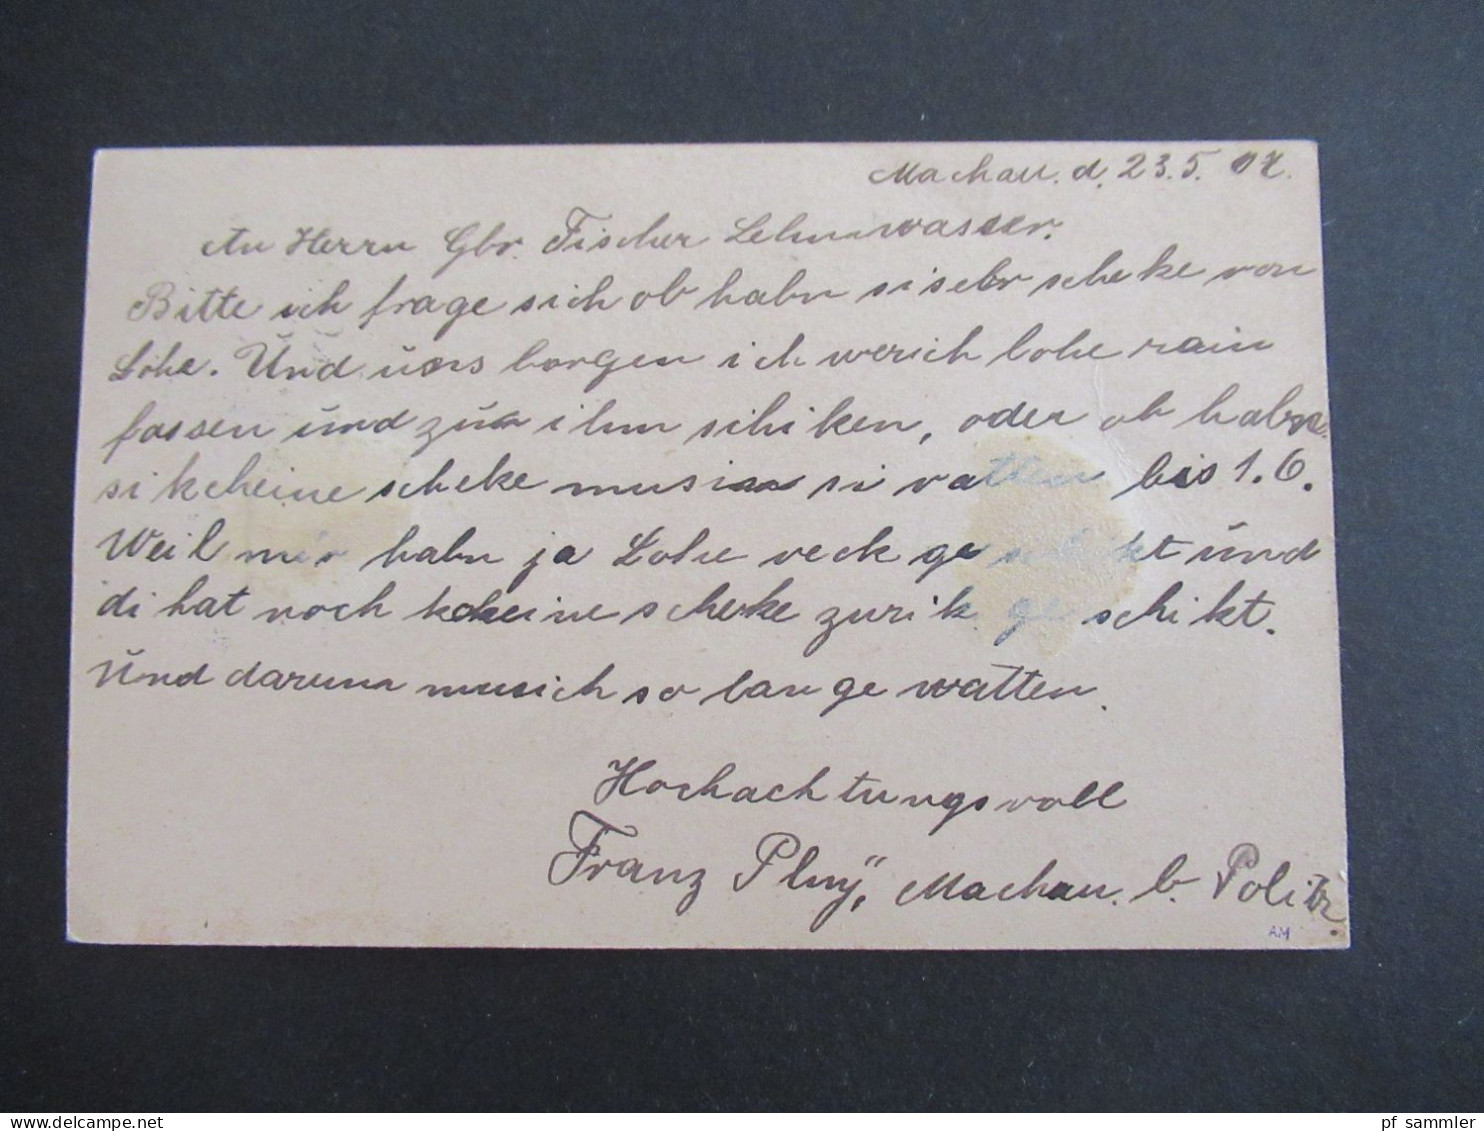 Machau. d. 23.5. 07.
An Herrn Gbr. Fischer Lehmwasser.
Bitte ich frage sich ob habn si sebr scheke von
Lohe. Und uns borgen ich werich lohe rain
fassen und zum ihm schiken, oder ob habn
si kcheine scheke mus si vatten bis 1.6.
Weil mir habn ja Lohe veck geschikt und
di hat noch kcheine scheke zurik geschikt.
Und darum musich so lange watten.
Hochachtungsvoll
Franz Pluÿ, Machau. b. Politz.
AM
pf sammler
delcampe.net